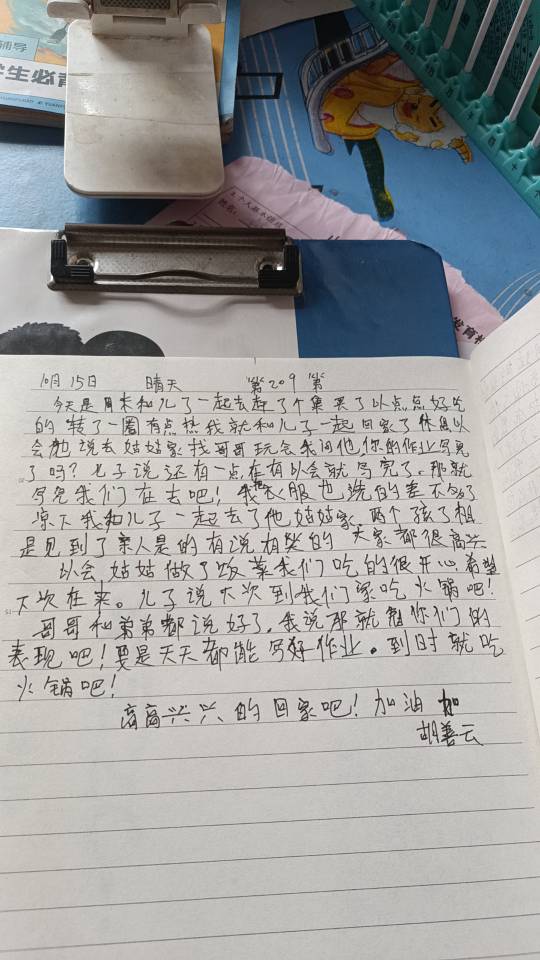 辅导
学生必
10月15日 晴天 第209第
今天是周末和儿了一起去赶了个集买了以点点好吃
的 转了一圈有点热我就和儿子一起回家了休息以
会他说去姑姑家找哥哥玩会我问他,你的作业写完
了吗?儿子说还有一点,在有以会就写完了.那就
写完我们在去吧!我衣服也洗的差不多了
凉下我和儿子一起去了他姑姑家.两个孩了相
是见到了亲人是的有说有笑的 大家都很高兴
以会姑姑做了饭菜我们吃的很开心.希望
下次在来。儿子说下次到我们家吃火锅吧!
哥哥和弟弟都说好了.我说那就看你们的
表现吧!要是天天都能写好作业。到时就吃
火锅吧!
高高兴兴的回家吧!加油 加
胡善云